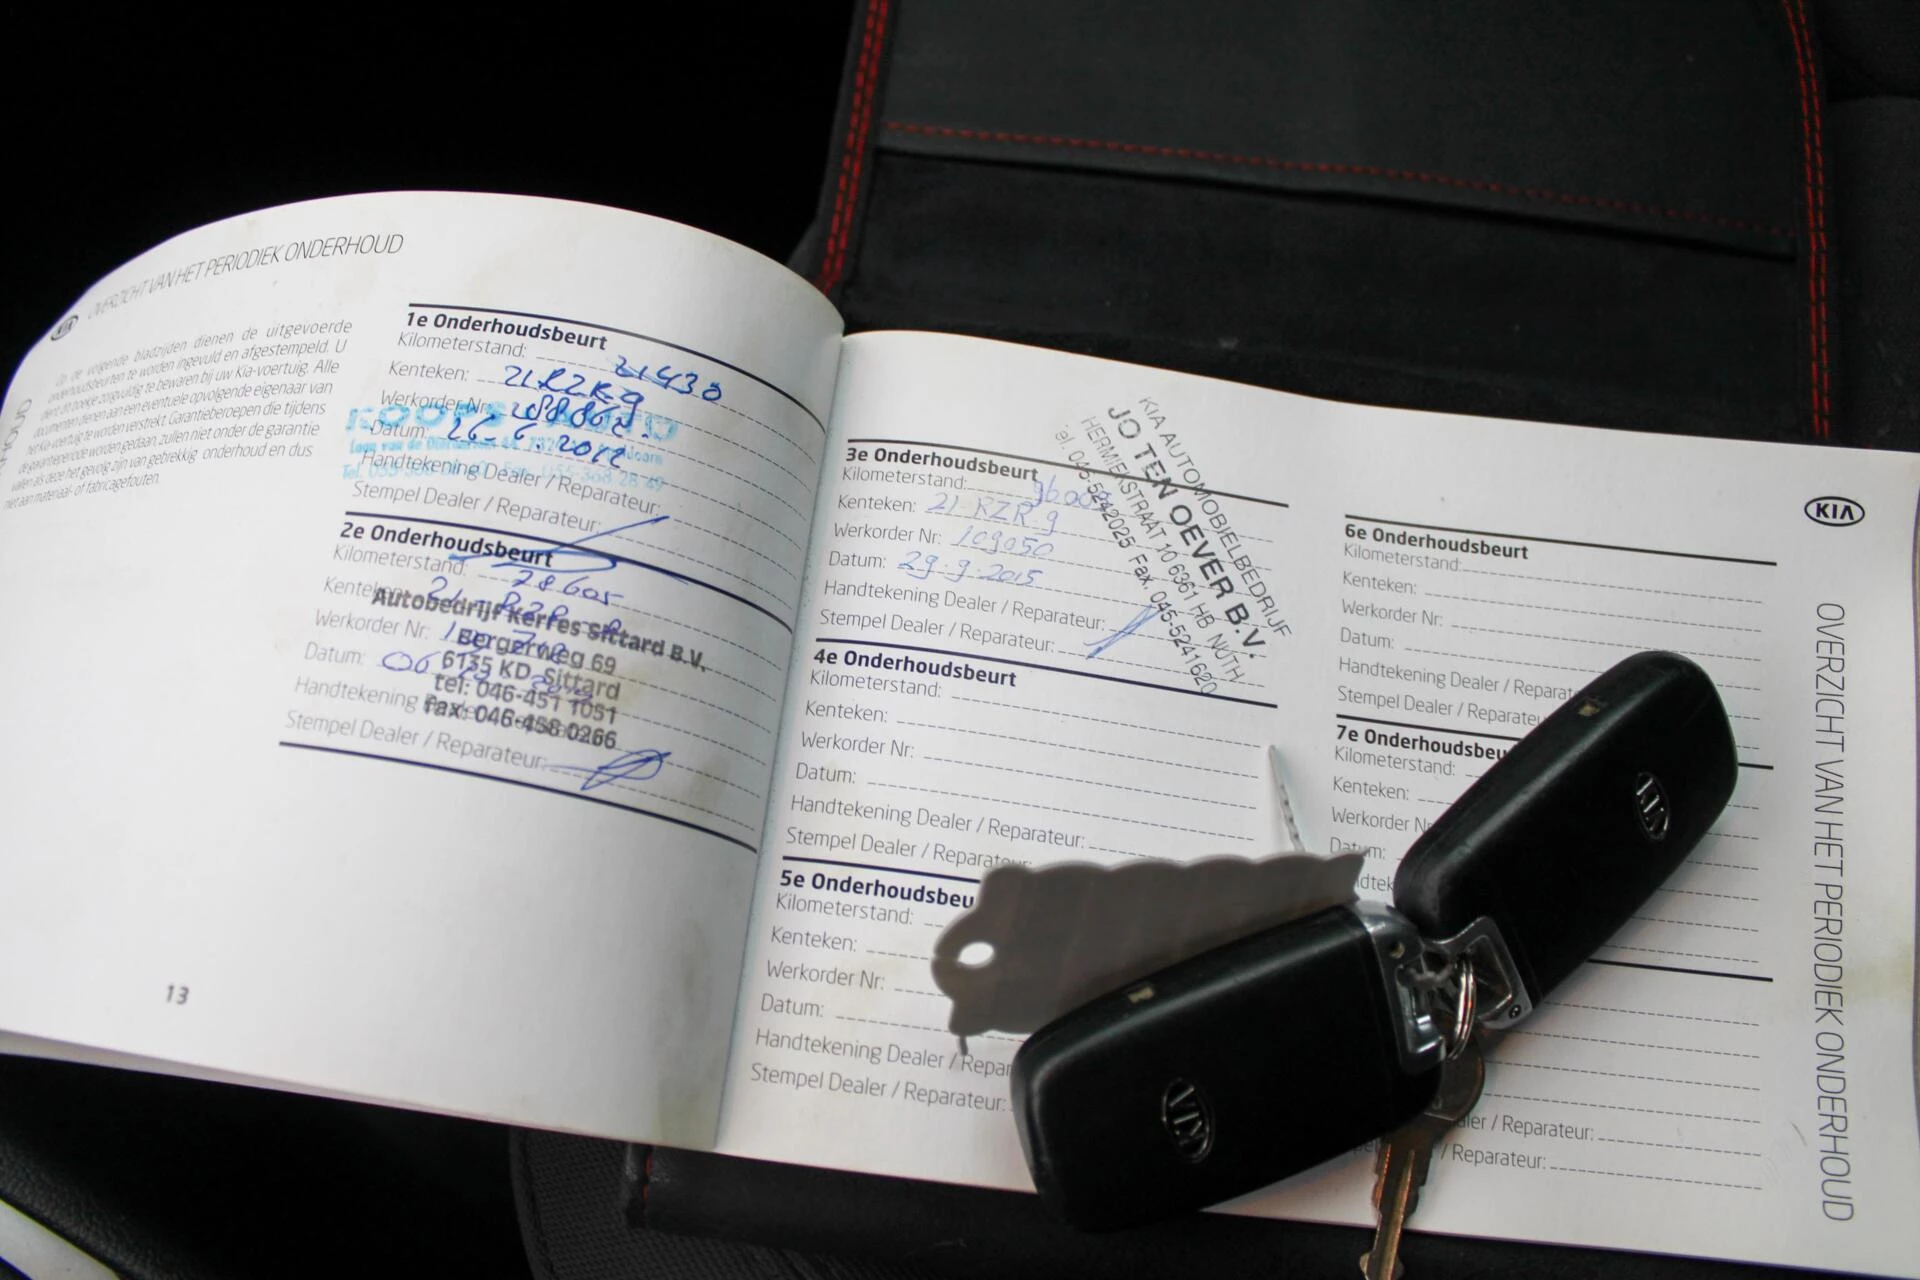 KIA OVERZICHT VAN HET PERIODIEK ONDERHOUD
Op de volgende bladzijden dienen de uitgevoerde
onderhoudsbeurten te worden ingevuld en afgestempeld. U
dient dit boekje zorgvuldig te bewaren bij uw Kia-voertuig. Alle
documenten dienen aan een eventuele opvolgende eigenaar van
het Kia-voertuig te worden verstrekt. Garantieberoepen die tijdens
de garantieperiode worden gedaan, zullen niet onder de garantie
vallen als deze het gevolg zijn van gebrekkig onderhoud en dus
niet aan materiaal- of fabricagefouten.
13
1e Onderhoudsbeurt
Kilometerstand: 21430
Kenteken:
Werkorder Nr:
Datum: 26.6.2012
Handtekening Dealer / Reparateur:
Stempel Dealer / Reparateur:
2e Onderhoudsbeurt
Kilometerstand: 78605
Kenteken:
Werkorder Nr:
Datum: 06
Handtekening
Stempel Dealer / Reparateur:
Autobedrijf Kerres Sittard B.V.
Bergerweg 69
6135 KD Sittard
tel: 046-451 1051
fax: 046-458 0266
3e Onderhoudsbeurt
Kilometerstand:
Kenteken: 21 RZR 9
Werkorder Nr: 109050
Datum: 29.9.2015
Handtekening Dealer / Reparateur:
Stempel Dealer / Reparateur:
KIA AUTOMOBIELBEDRIJF
JO TEN OEVER B.V.
HERMESSTRAAT 10 6361 HB NUTH
Tel. 045-5242025 Fax. 045-5241620
4e Onderhoudsbeurt
Kilometerstand:
Kenteken:
Werkorder Nr:
Datum:
Handtekening Dealer / Reparateur:
Stempel Dealer / Reparateur:
5e Onderhoudsbeu
Kilometerstand:
Kenteken:
Werkorder Nr:
Datum:
Handtekening Dealer / Repar
Stempel Dealer / Reparateur:
6e Onderhoudsbeurt
Kilometerstand:
Kenteken:
Werkorder Nr:
Datum:
Handtekening Dealer / Reparat
Stempel Dealer / Reparateu
7e Onderhoudsbeu
Kilometerstand:
Kenteken:
Werkorder N
Datum:
ler / Reparateur:
/ Reparateur:
KIA
OVERZICHT VAN HET PERIODIEK ONDERHOUD
KIA
KIA